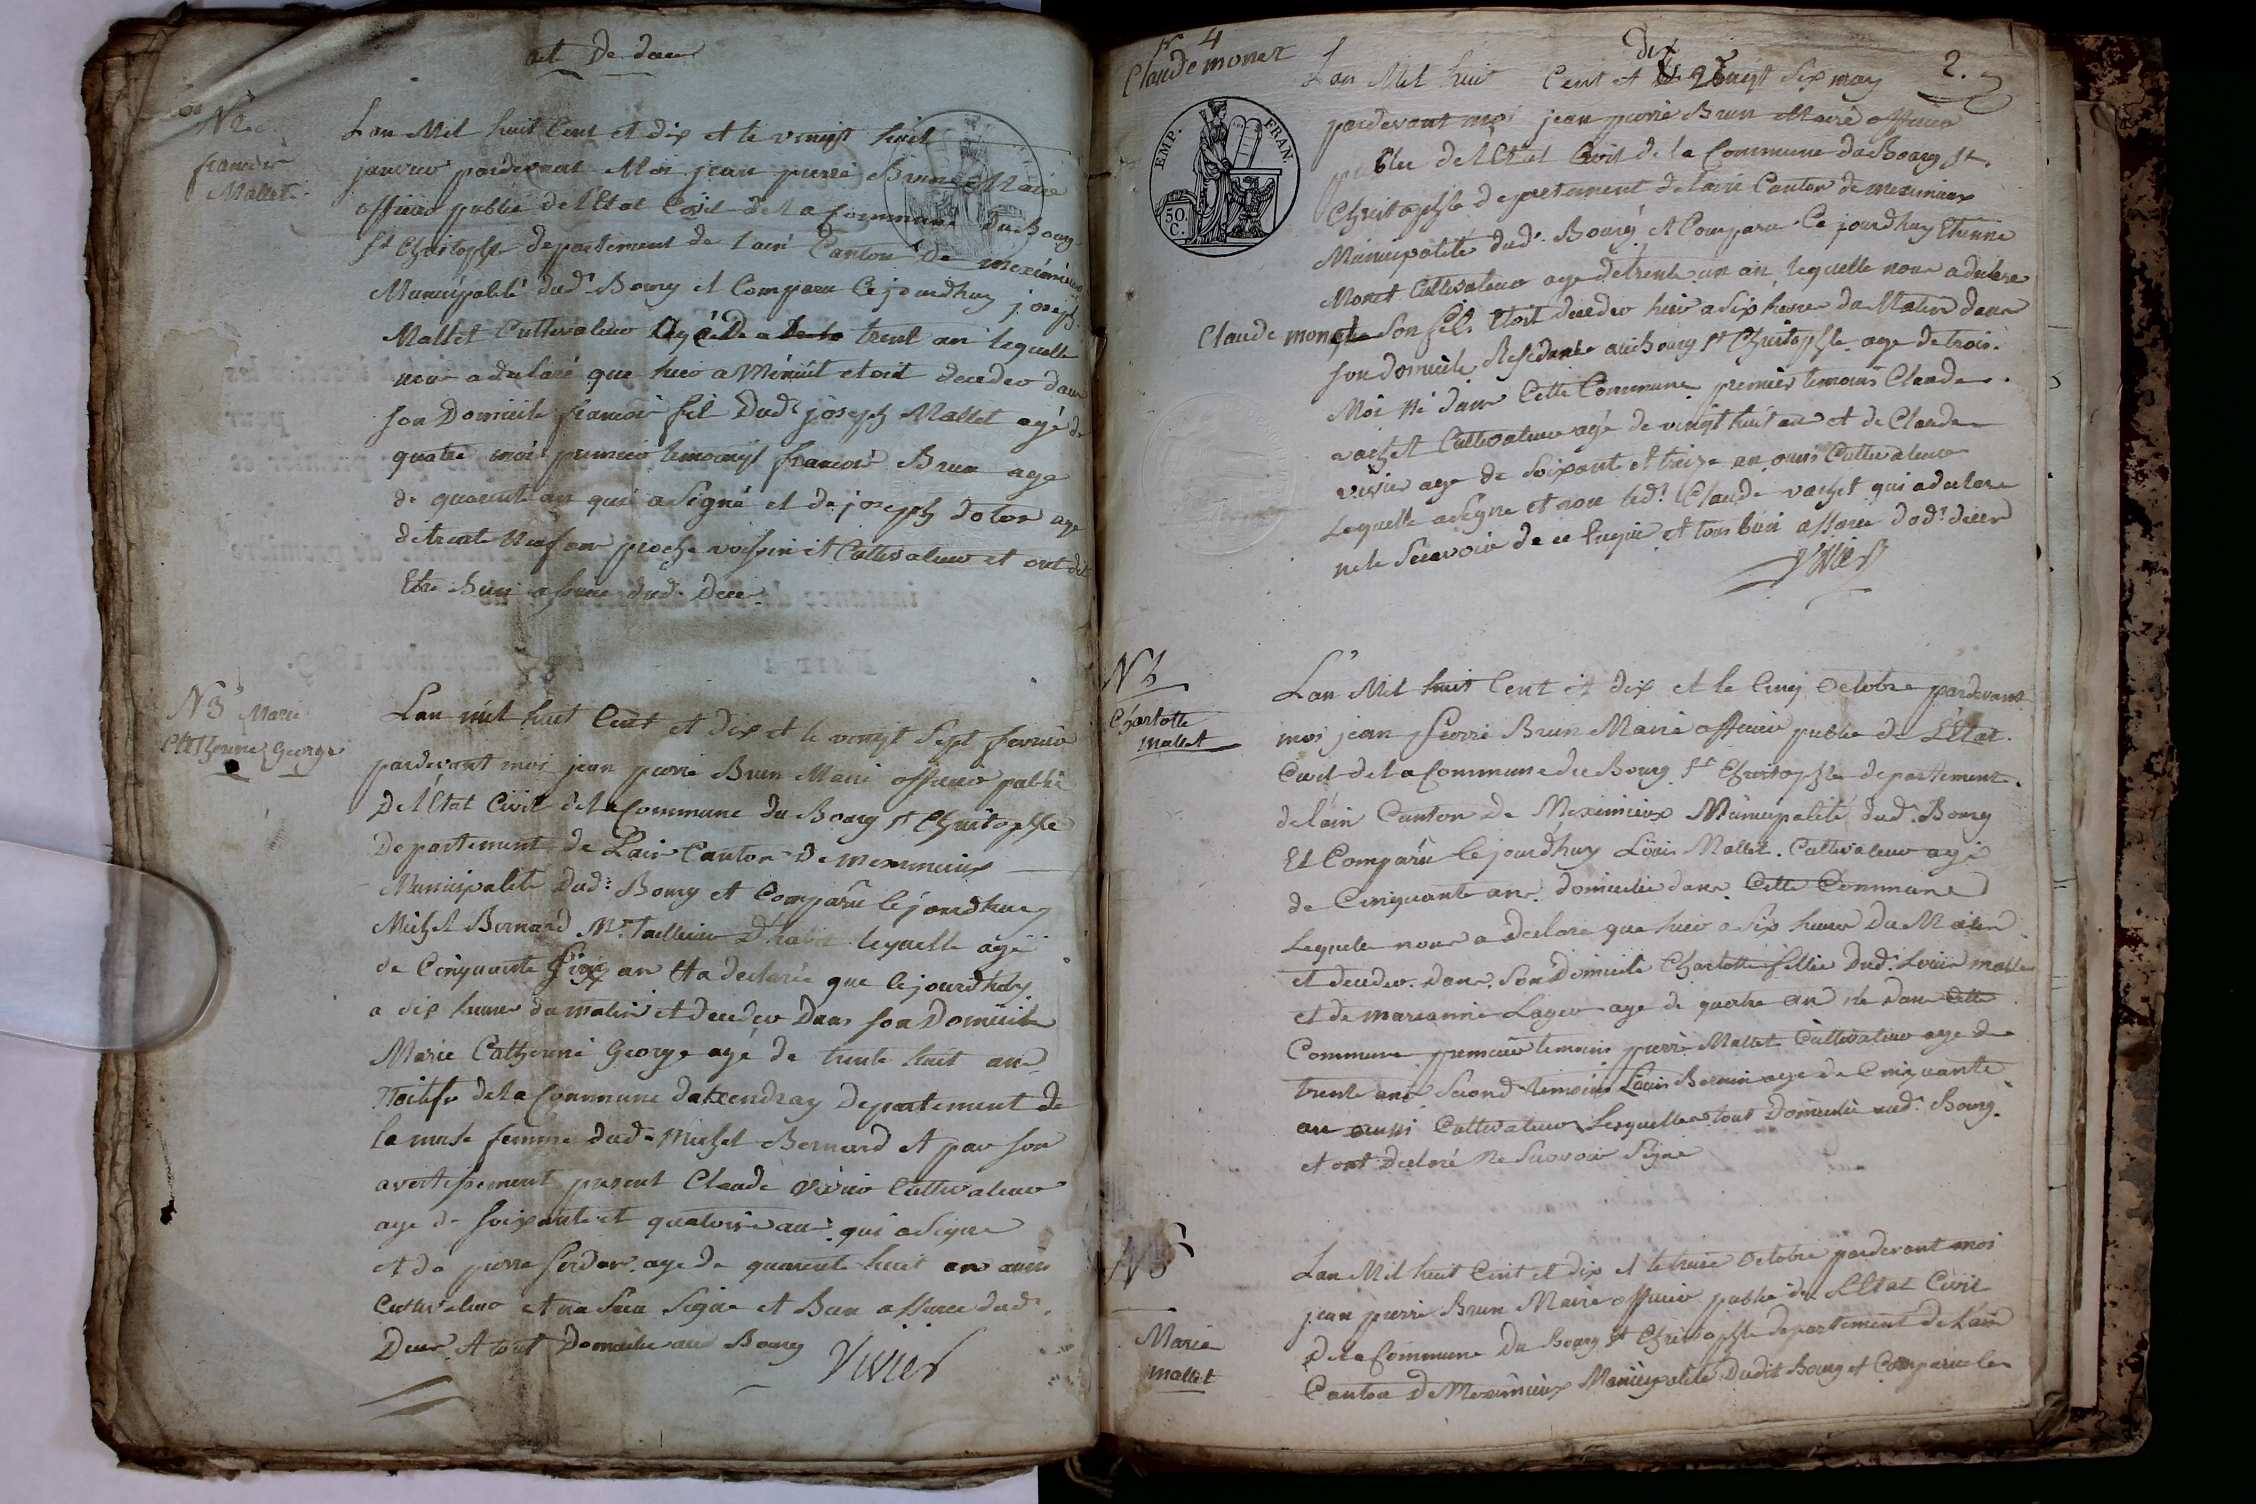 act De deces
N 2
francois
Mallet
Lan Mil huit Cent et dix et le vingt huit
janvier pardevant Moi jean pierre Brun Maire
officier public de l'Etat Civil de la Commune du Bourg
St Christophle departement de lain Canton de meximieux
Municipalité dud. Bourg et Comparu Cejourdhuy joseph
Mallet Cultivateur agé de trent an lequelle
nous a declaré que hier a Minuit etoit decedeo dans
son Domicile francois fil Dud. joseph Mallet agé de
quatre moi premier temoingt francois Brun age
de quarente an qui a Signé et de joseph Dolon age
de trente Neuf an proche voisin et Cultivateur et ont dit
Etre Bien assuré dud. Dece
N 3 Marie
Catherine George
Lan mil huit Cent et Dix et le vingt Sept fevrier
pardevant moi jean pierre Brun Maire officier public
De l'Etat Civil de la Commune du Bourg St Christophle
Departement de Lain Canton De meximieux
Municipalité Dud. Bourg et Comparu Cejourdhuy
Michel Bernard Mr Tailleur D'habit lequelle agé
de Cinquante an et a declarée que Cejourdhuy
a six heure du matin et decedeo Dans son Domicile
Marie Catherine George agé de trente huit an
Naitife de la Commune departement de
la muse femme dud. Michel Bernard et par son
avertissement present Claude vivier Cultivateur
age de soixante et quatorze an qui a Signe
et de pierre ferdor age de quarente huit an aussi
Cultivateur et na Seu Signe et Bien assuree dud.
Deces et tout Domicilie au Bourg
Vivier
N 4
Claude monet
2.
EMP. FRAN.
50. C.
Lan Mil huit Cent et dix vingt Six may
pardevant moi jean pierre Brun Maire officier
public de l'Etat Civil de la Commune du Bourg St
Christophle departement de lain Canton de meximieux
Municipalité dud. Bourg et Comparu Cejourdhuy Etienne
Monet Cultivateur age de trente un an lequelle nous a declare
Claude monet que Son fils Etoit decedeo hier a Six heure du Matin dans
son domicile Residente au Bourg St Christophle age de trois
Moi Né dans Cette Commune premier temoins Claude
vachet Cultivateur agé de vingt huit an et de Claude
vivier age de Soixante et treize an aussi Cultivateur
Lequelle a Signe et non led. Claude vachet qui a declare
ne le Scavoir de ce Enquis et tous bien assuré dud. deces
Vivier
N 4
Charlotte
Mallet
L'an Mil huit Cent et dix et le Cinq Octobre pardevant
moi jean pierre Brun Maire officier public de L'Etat
Civil de la Commune du Bourg St Christophle departement
de lain Canton de Meximieux Municipalité dud. Bourg
Et Comparu Cejourdhuy Louis Mallet Cultivateur agé
de Cinquante an domicilie dans Cette Commune
Lequelle nous a declare que hier a Six heure Du Matin
et decedeo Dans Son Domicile Charlotte fillie Dud. Louis Mallet
et de marianne Lager age de quatre an né Dans Cette
Commune premier temoins pierre Mallet Cultivateur age de
trente an Second temoins Louis Bernin age de Cinquante
an aussi Cultivateur Lesquelles tout Domicilie aud. Bourg
et ont Declaré Ne Scavoir Signe
N 5
Marie
Mallet
Lan Mil huit Cent et dix et le treize Octobre pardevant moi
jean pierre Brun Maire officier public de L'Etat Civil
De la Commune Du Bourg St Christophle departement De Lain
Canton De Meximieux Municipalité Dudit Bourg et Comparu le